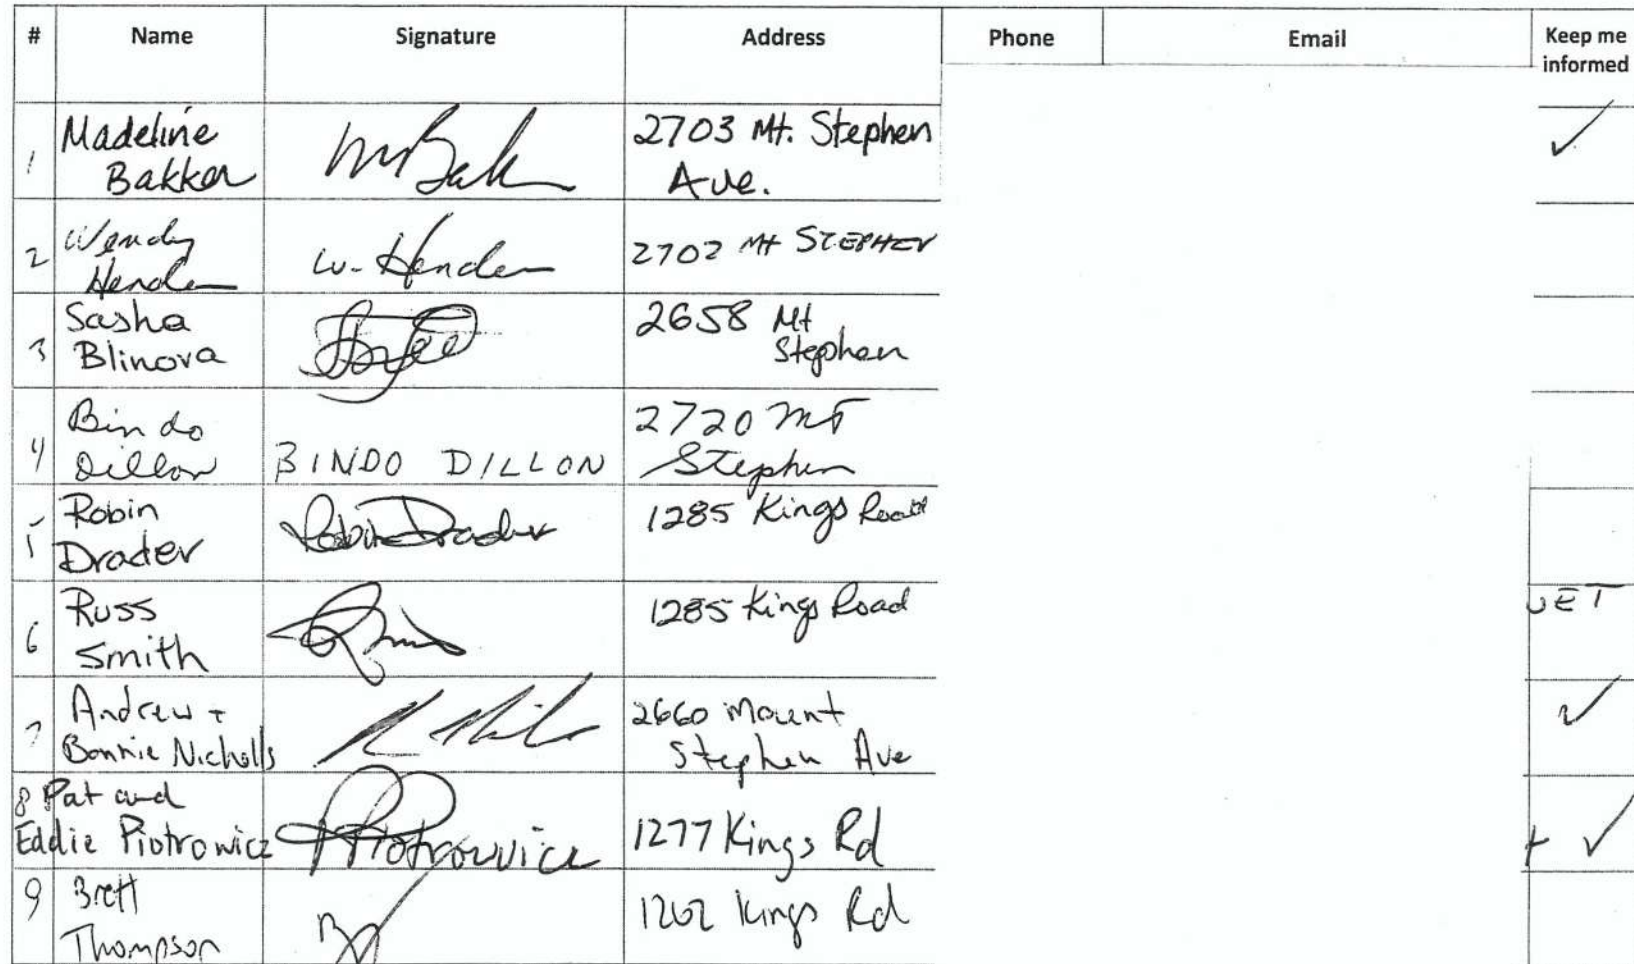 # Name Signature Address Phone Email Keep me informed
1 Madeline Bakker MBak 2703 Mt. Stephen Ave. ✓
2 Wendy W. 2702 Mt STEPHEN
3 Sasha Blinova 2658 Mt Stephen
4 Bindo Dillon BINDO DILLON 2720 Mt Stephen
5 Robin Drader Robin Drader 1285 Kings Road
6 Russ Smith 1285 Kings Road
7 Andrew + Bonnie Nicholls 2660 Mount Stephen Ave ✓
8 Pat and Eddie Piotrowicz PPiotrowicz 1277 Kings Rd ✓
9 Brett Thompson Kings Rd